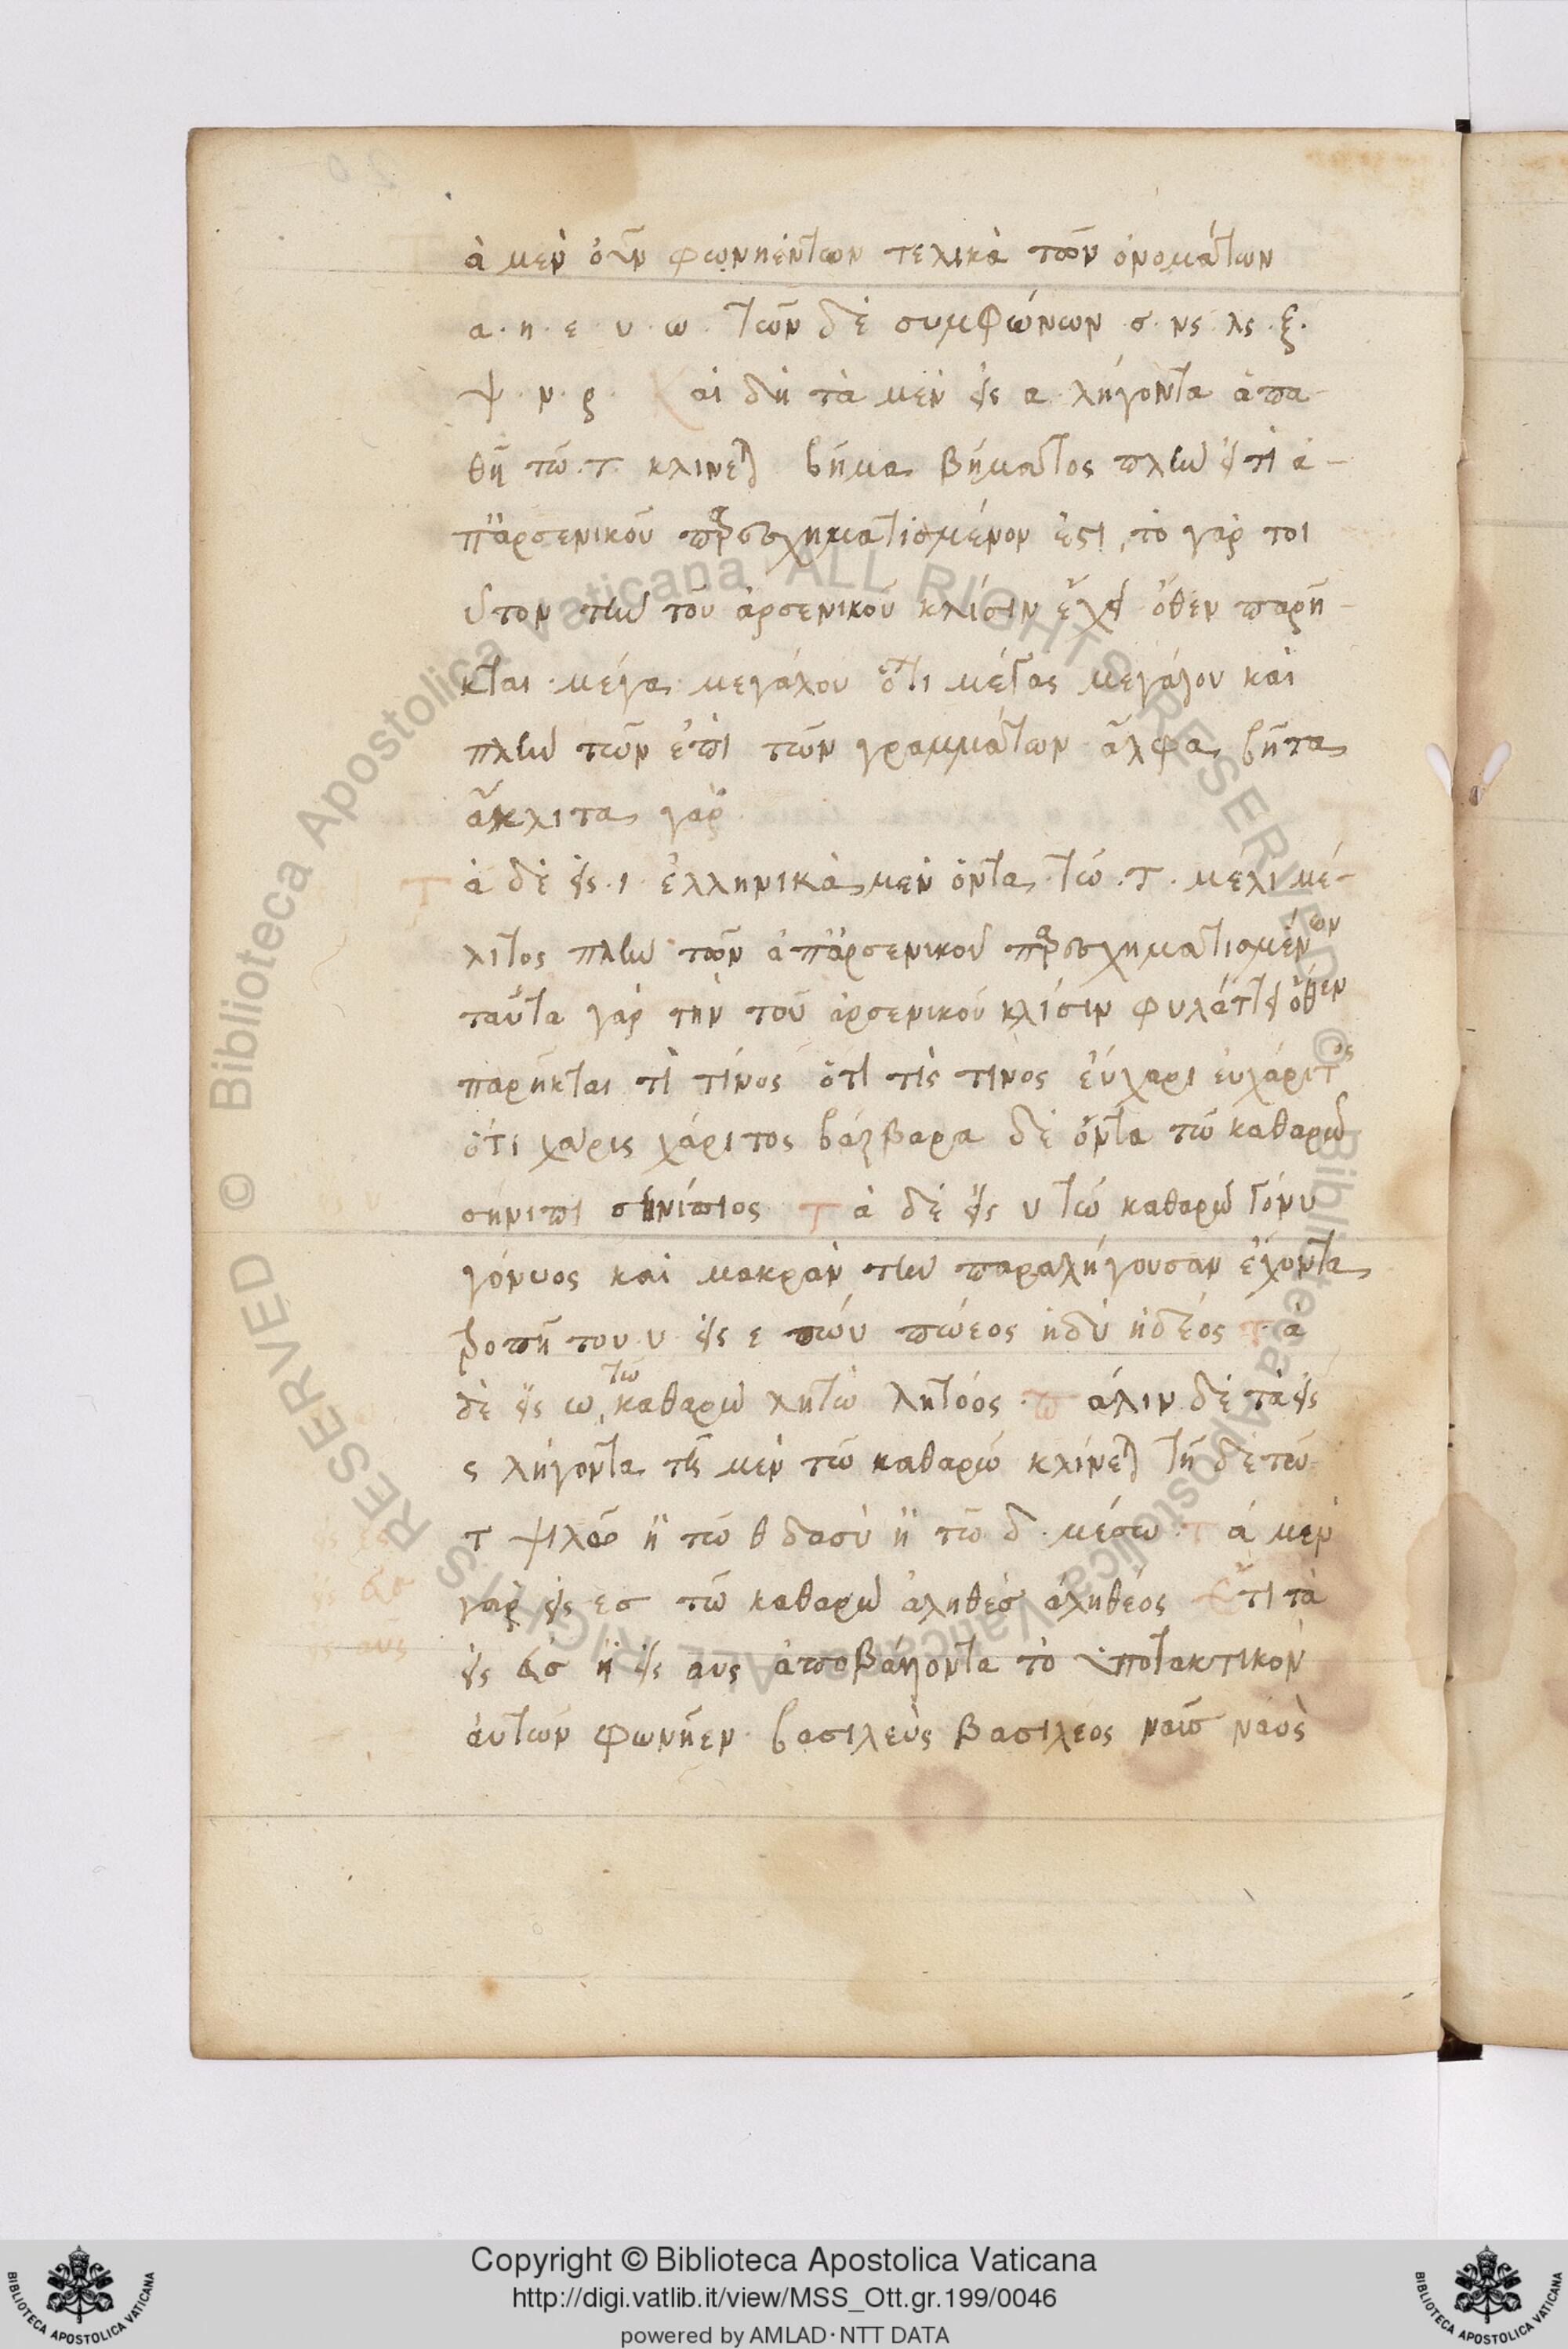 ὰ μὲν οὖν φωνηέντων τελικὰ τῶν ὀνομάτων
α · η · ε · υ · ω · τῶν δὲ συμφώνων · σ · νς · λς · ξ ·
ψ · ν · ρ · Καὶ δὴ τὰ μὲν εἰς α λήγοντα ἀπα-
θῆ τῶ · τ · κλίνεται βῆμα βήματος πλὴν εἴ τι ἀ-
π' ἀρσενικοῦ παρεσχηματισμένον ἐστι, τὸ γάρ τοι
οῦτον τὴν τοῦ ἀρσενικοῦ κλίσιν ἔχει ὅθεν παρῆ-
κται · μέγα · μεγάλου ὅτι μέγας μεγάλου καὶ
πλὴν τῶν ἐπὶ τῶν γραμμάτων ἄλφα βῆτα
ἄκλιτα γάρ ·
Τὰ δὲ εἰς · ι · ἑλληνικὰ μὲν ὄντα τῶ · τ · μέλι μέ-
λιτος πλὴν τῶν ἀπ' ἀρσενικοῦ παρεσχηματισμένων
ταῦτα γὰρ τὴν τοῦ ἀρσενικοῦ κλίσιν φυλάττει ὅθεν
παρῆκται τὶ τίνος ὅτι τὶς τινος εὔχαρι εὐχάριτος
ὅτι χάρις χάριτος βάρβαρα δὲ ὄντα τῶ καθαρῶ
σήνιπι σηνίπιος Τὰ δὲ εἰς υ τῶ καθαρῶ γόνυ
γόνυος καὶ μακρὰν τὴν παραλήγουσαν ἔχοντα
ῥοπῆ του υ εἰς ε πῶυ πώεος ἡδὺ ἡδέος Τὰ
δὲ εἰς ω, τῶ καθαρῶ λητὼ λητόος Πάλιν δὲ τὰ εἰς
ς λήγοντα πῆ μὲν τῶ καθαρῶ κλίνεται πῆ δὲ τῶ
τ ψιλῶ ἢ τῶ θ δασὺ ἢ τῶ δ · μέσω Τὰ μὲν
γὰρ εἰς εσ τῶ καθαρῶ ἀληθὲσ ἀληθέος Ἔτι τὰ
εἰς ευσ ἢ εἰς αυς ἀποβάλλοντα τὸ ὑποτακτικὸν
αὐτῶν φωνῆεν · βασιλεὺς βασιλέος ναῦσ ναὸς
Copyright © Biblioteca Apostolica Vaticana
http://digi.vatlib.it/view/MSS_Ott.gr.199/0046
powered by AMLAD·NTT DATA